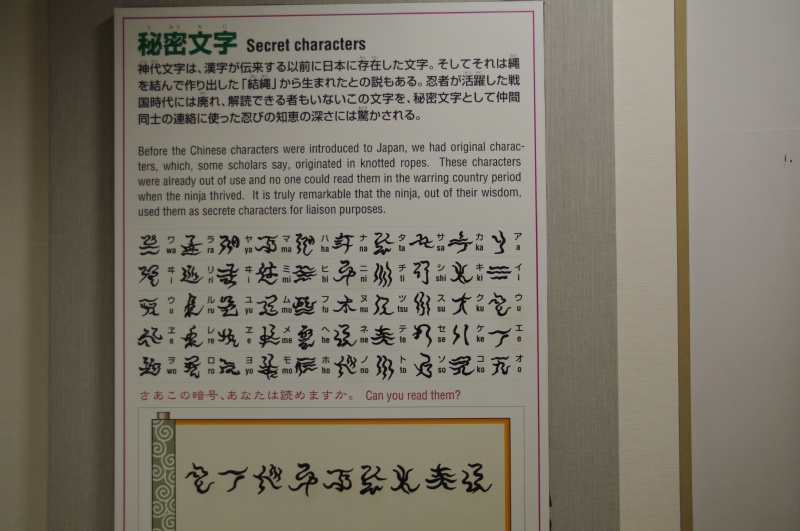 秘密文字 Secret characters
神代文字は、漢字が伝来する以前に日本に存在した文字。そしてそれは縄
を結んで作り出した「結縄」から生まれたとの説もある。忍者が活躍した戦
国時代には廃れ、解読できる者もいないこの文字を、秘密文字として仲間
同士の連絡に使った忍びの知恵の深さには驚かされる。
Before the Chinese characters were introduced to Japan, we had original charac-
ters, which, some scholars say, originated in knotted ropes. These characters
were already out of use and no one could read them in the warring country period
when the ninja thrived. It is truly remarkable that the ninja, out of their wisdom,
used them as secrete characters for liaison purposes.
ワ ラ ヤ マ ハ ナ タ サ カ ア
wa ra ya ma ha na ta sa ka a
ヰ リ ヰ ミ ヒ ニ チ シ キ イ
i ri i mi hi ni ti shi ki i
ウ ル ユ ム フ ヌ ツ ス ク ウ
u ru yu mu fu nu tsu su ku u
ヱ レ ヱ メ ヘ ネ テ セ ケ エ
e re e me he ne te se ke e
ヲ ロ ヨ モ ホ ノ ト ソ コ オ
wo ro yo mo ho no to so ko o
さあこの暗号、あなたは読めますか。 Can you read them?